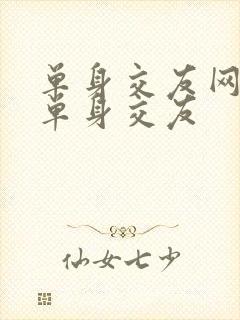 单身交友网
单身交友
仙女七少